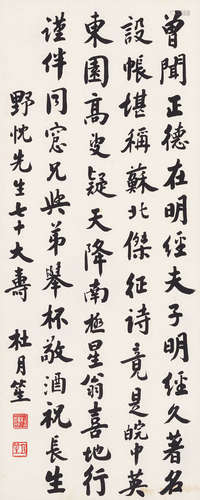 曾聞正德在明經夫子明經久著名
設帳堪稱蘇北傑征诗竟是皖中英
東園高叟疑天降南極星翁喜地行
謹伴同窓兄與弟舉杯敬酒祝長生
野忱先生七十大壽
杜月笙